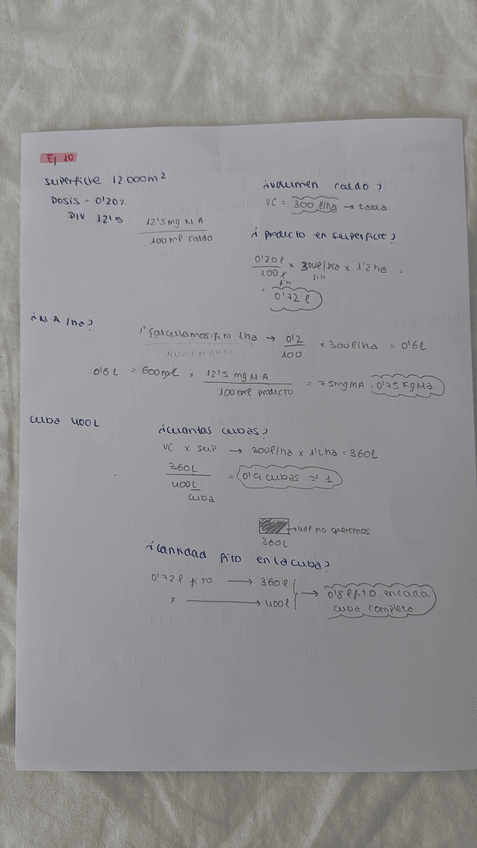 Ej 10
Superficie 12 000m²
Dosis = 0'20%
DIV 12'5
12'5 mg M A
100 ml caldo
¿Volumen caldo?
VC = 300 l/ha → tabla
¿Producto en superficie?
0'20 l
100 l
x 300 l/ha x 1'2 ha =
= 0'72 l
¿M.A /ha?
1º calculamos fito 1ha → 0'2
100
x 300 l/ha = 0'6 l
0'6 l = 600 ml x 12'5 mg M A
100 ml producto
= 75 mg MA
Cuba 400L
¿Cuántas cubas?
VC x sup → 300 l/ha x 1'2ha = 360L
360L
400L
cuba
= 0'9 cubas ≈ 1
no queremos
360L
¿Cantidad fito en la cuba?
0'72 l fito → 360 l
x → 400 l
→ 0'8 l fito en cada
cuba completa